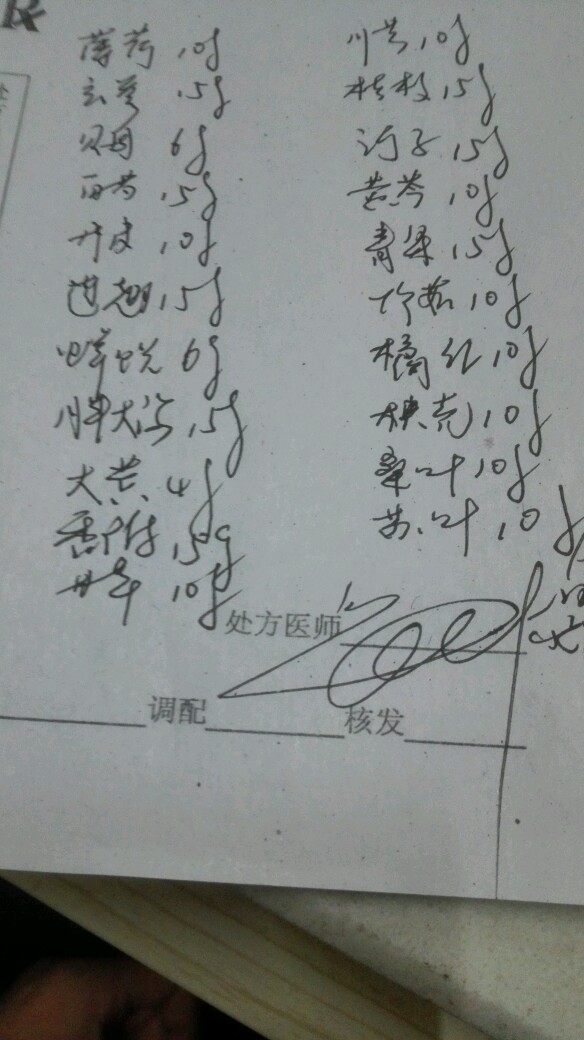 R
薄荷 10g 川芎 10g
玄参 15g 桂枝 15g
贝母 6g 诃子 15g
白芍 15g 黄芩 10g
丹皮 10g 青果 15g
连翘 15g 竹茹 10g
蝉蜕 6g 橘红 10g
胖大海 15g 枳壳 10g
大黄 4g 桑叶 10g
香附 15g 苏叶 10g
甘草 10g
处方医师
调配 核发